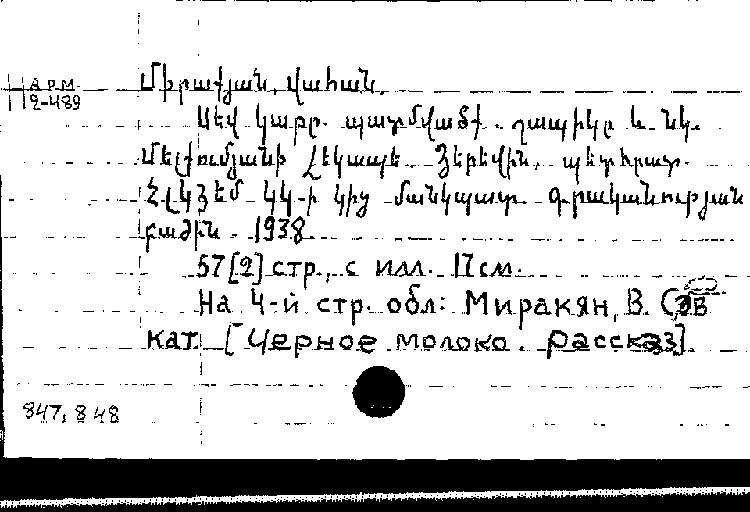 АРМ
2-489
Միրաքյան, Վահան.
Սեվ կաթը. պատմվածք. շապիկը և նկ.
Մելքումյանի Լեկապե. Յերեվին, պետհրատ.
ՀԼԿՅԵՄ ԿԿ-ի կից մանկպատ. գրականության
բաժին. 1938
57[2] стр., с илл. 17 см.
На 4-й стр. обл: Миракян, В. Сев
кат [Черное молоко. рассказ].
847.848